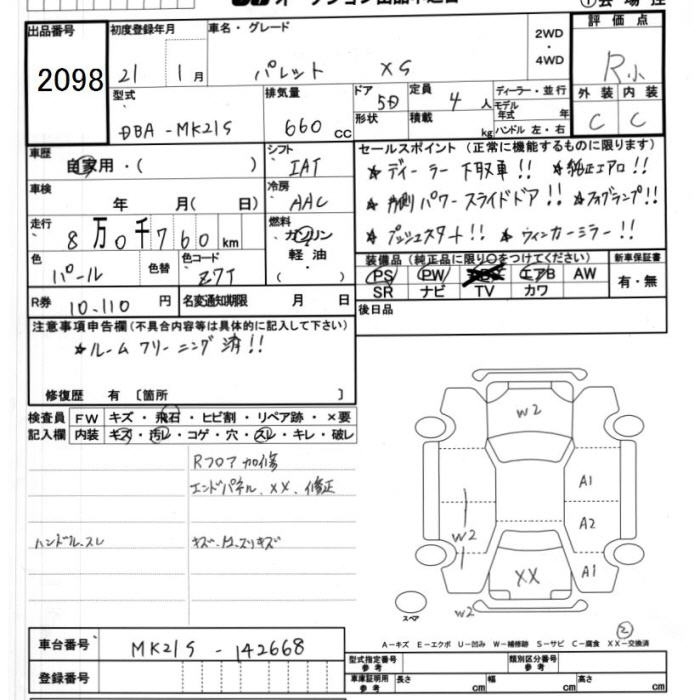 オークション出品申込書
出品番号
2098
初度登録年月
21 1月
車名・グレード
パレット XS
2WD
・
4WD
評価点
R小
型式
DBA-MK21S
排気量
660 cc
ドア
5D
形状
定員
4 人
積載
kg
ディーラー・並行
モデル
年式 年
ハンドル 左・右
外装 内装
C C
車歴
自家用・( )
シフト
IAT
セールスポイント (正常に機能するものに限ります)
★ディーラー下取車!! ★純正エアロ!!
★両側パワースライドドア!! ★フォグランプ!!
★プッシュスタート!! ★ウィンカーミラー!!
車検
年 月( 日)
冷房
AAC
走行
8万0千760 km
燃料
ガソリン
軽油・
( )
色
パール
色替
色コード
Z7T
装備品 (純正品に限り○をつけてください)
PS PW エアB AW
SR ナビ TV カワ
新車保証書
有・無
R券
10.110 円
名変通知期限
月 日
後日品
注意事項申告欄(不具合内容等は具体的に記入して下さい)
★ルームクリーニング済!!
修復歴 有 〔箇所 〕
検査員
記入欄
FW キズ・飛石・ヒビ割・リペア跡・×要
内装 キズ・汚レ・コゲ・穴・スレ・キレ・破レ
Rフロア加修
エンドパネル、XX、修正
ハンドル、スレ
キズ・凹、スリキズ
W2
A1
A2
W2
A1
XX
スペア
W2
2
A-キズ E-エクボ U-凹み W-補修跡 S-サビ C-腐食 XX-交換済
車台番号
MK21S-142668
登録番号
型式指定番号
参考
類別区分番号
参考
車庫証明用
参考
長さ cm
幅 cm
高さ cm